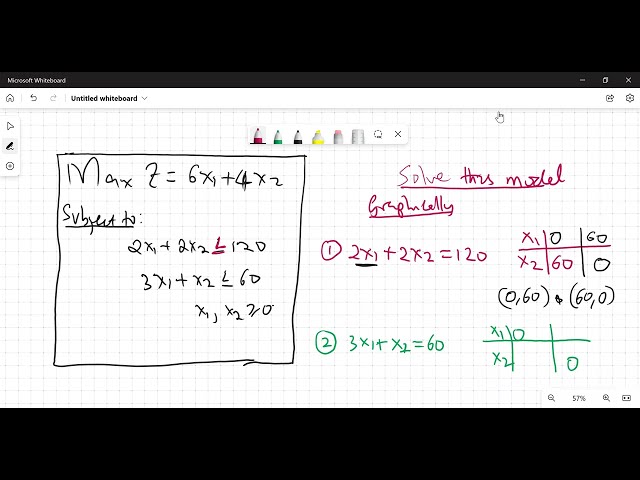 Microsoft Whiteboard
Untitled whiteboard
Max Z = 6x1 + 4x2
Subject to:
2x1 + 2x2 ≤ 120
3x1 + x2 ≤ 60
x1, x2 ≥ 0
Solve this model
Graphically
① 2x1 + 2x2 = 120
x1 | 0 | 60
x2 | 60 | 0
(0,60) & (60,0)
② 3x1 + x2 = 60
x1 | 0 |
x2 | | 0
57%